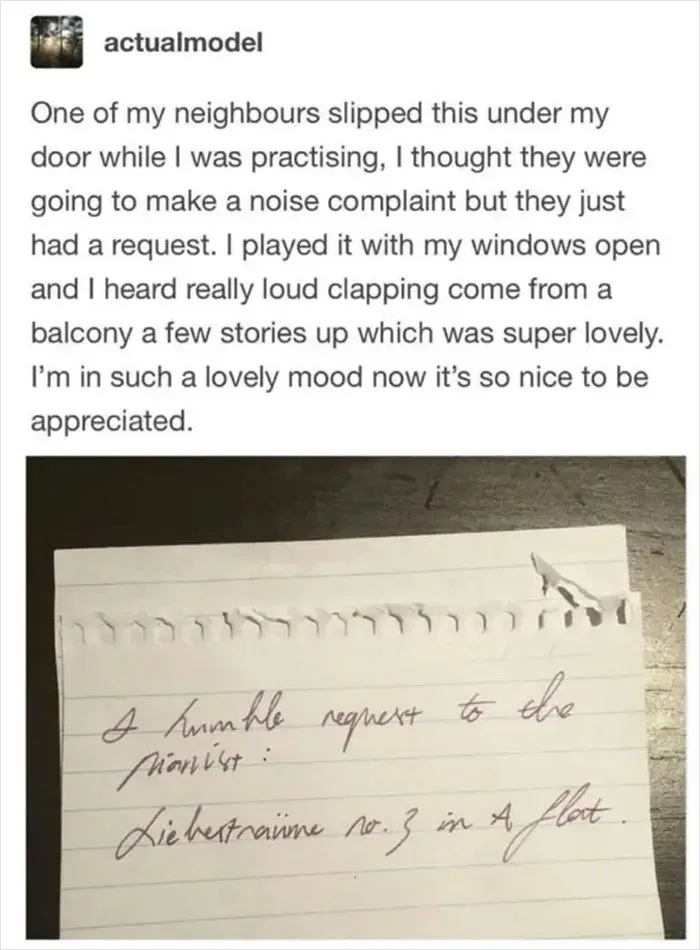 actualmodel
One of my neighbours slipped this under my
door while I was practising, I thought they were
going to make a noise complaint but they just
had a request. I played it with my windows open
and I heard really loud clapping come from a
balcony a few stories up which was super lovely.
I'm in such a lovely mood now it's so nice to be
appreciated.
A humble request to the
pianist :
Liebesträume no. 3 in A flat.